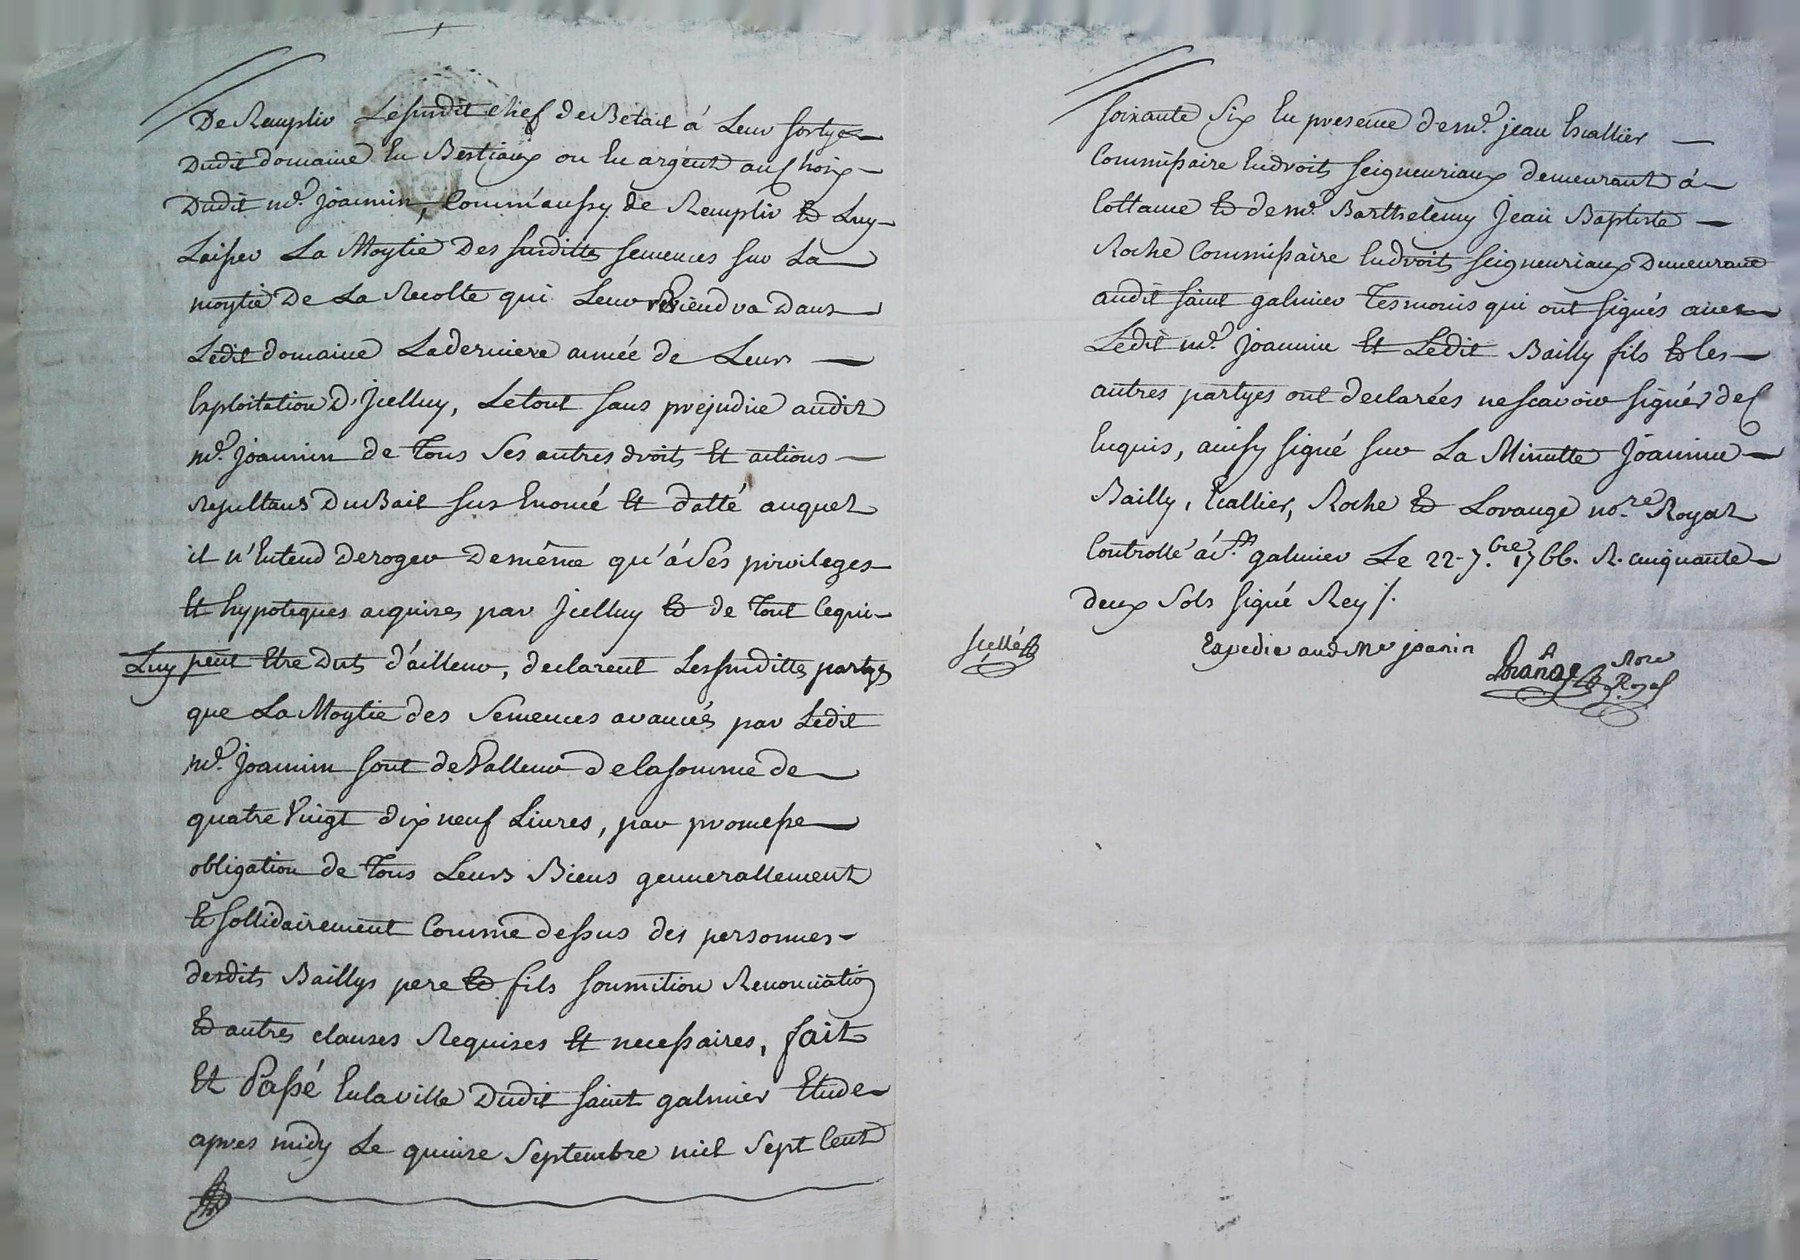 De Remplir Lesusdit chef de Betail á Leur sortye
Dudit domaine En Bestiaux ou En argent au Choix
Dudit mr. Joannin, Comm'aussy de Remplir et Luy
Laisser La Moytié Des susdittes semences sur La
moytié De La Recolte qui Leur Reviendra Dans
Ledit domaine La derniere année de Leurs
Exploitation D'Jcelluy, Le tout sans prejudice audit
mr. Joannin de Tous Ses autres droits Et actions
Resultans Du Bail sus Enoncé Et datté auquel
il n'Entend deroger De même qu'á Ses privileges
Et hypoteques acquises par Jcelluy et de Tout Cequi
Luy peut Etre Duts d'ailleur, declarent Lessusdittes partyes
que La Moytié des Semences avancés par Ledit
mr. Joannin sont de Valleur de la somme de
quatre Vingt dix neuf Livres, par promesse
obligation de Tous Leurs Biens genneralement
Et sollidairement Comme dessus des personnes
desdits Baillys pere et fils soumition Renonciation
et autres clauses Requises Et necessaires, fait
Et Passé En la ville Dudit saint galmier Etude
apres midy Le quinze Septembre mil Sept Cent
soixante Six En presence de mr. jean Escallier
Commissaire En droits seigneuriaux demeurant á
Cottance et de mr. Barthelemy Jean Baptiste
Roche Commissaire En droits seigneuriaux Demeurant
audit saint galmier Tesmoins qui ont signés avec
Ledit mr. Joannin Et Ledit Bailly fils et les
autres partyes ont declarées ne scavoir signér de ce
Enquis, ainsy signé sur La Minutte Joannin
Bailly, Escallier, Roche et Lorange nore. Royal
Controllé á St. galmier Le 22. 7bre. 1766. R. cinquante
deux Sols signé Rey /.
scellé
Expedie aud Mr joanin
Lorange Nore Royal